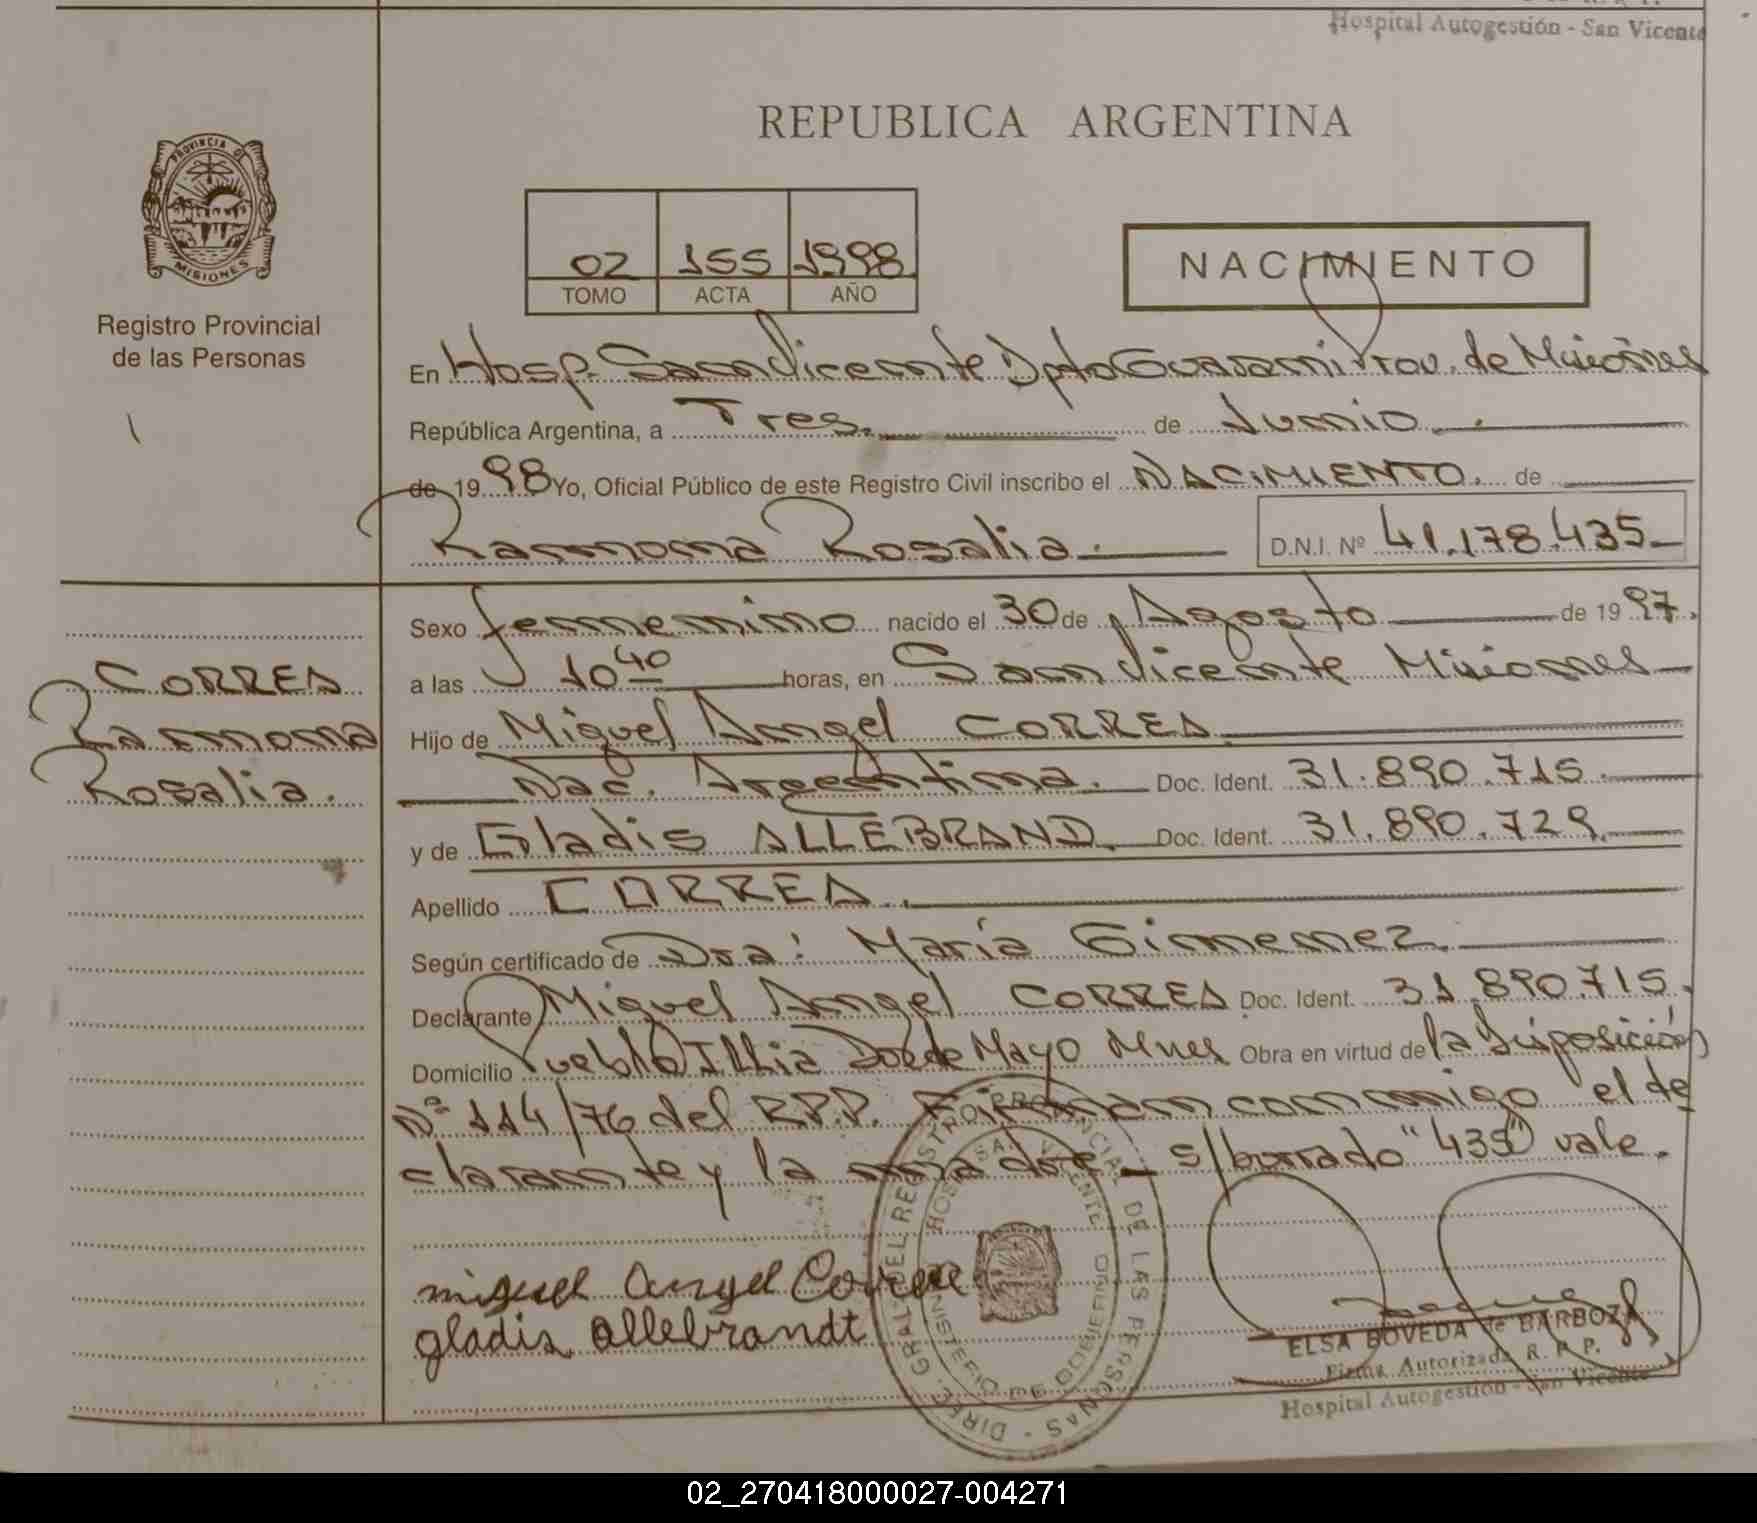 Hospital Autogestión - San Vicente
REPUBLICA ARGENTINA
PROVINCIA DE
MISIONES
Registro Provincial
de las Personas
02 155 1998
TOMO ACTA AÑO
NACIMIENTO
En Hosp. San Vicente Dpto Guaraní Prov. de Misiones
República Argentina, a Tres. de Junio.
de 1998 Yo, Oficial Público de este Registro Civil inscribo el NACIMIENTO. de
Ramona Rosalia. D.N.I. Nº 41.178.435
Sexo femenino nacido el 30 de Agosto de 1997.
CORREA
Ramona
Rosalia.
a las 10 40 horas, en San Vicente Misiones
Hijo de Miguel Angel CORREA
Nac. Argentina. Doc. Ident. 31.890.715.
y de Gladis ALLEBRAND. Doc. Ident. 31.890.729.
Apellido CORREA.
Según certificado de Dra: María Gimenez.
Declarante Miguel Angel CORREA Doc. Ident. 31.890.715.
Domicilio Pueblo Illia Dos de Mayo Mnes Obra en virtud de la disposición
Nº 114/76 del R.P.P. Firman conmigo el de
clarante y la madre - s/borrado "435" vale.
miguel angel Correa
gladis allebrandt
DIREC. GRAL. DEL REGISTRO PROVINCIAL DE LAS PERSONAS
HOSP. SAN VICENTE
MINISTERIO DE GOBIERNO
ELSA BOVEDA de BARBOZA
Firma Autorizada R. P. P.
Hospital Autogestión - San Vicente
02_270418000027-004271